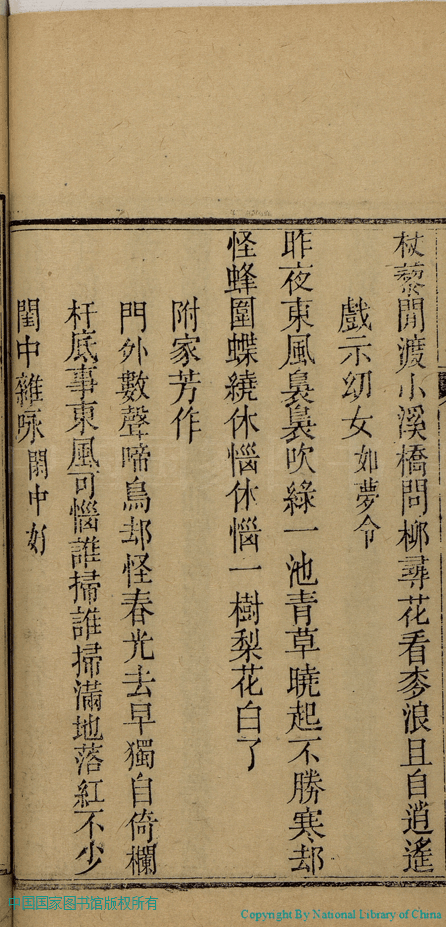 杖藜閒渡小溪橋問柳尋花看麥浪且自逍遙
戲示幼女如夢令
昨夜東風裊裊吹綠一池青草曉起不勝寒却
怪蜂圍蝶繞休惱休惱一樹梨花白了
附家芳作
門外數聲啼鳥却怪春光去早獨自倚欄
杆底事東風可惱誰掃誰掃滿地落紅不少
閨中雜咏閑中好
中国国家图书馆版权所有
Copyright By National Library of China